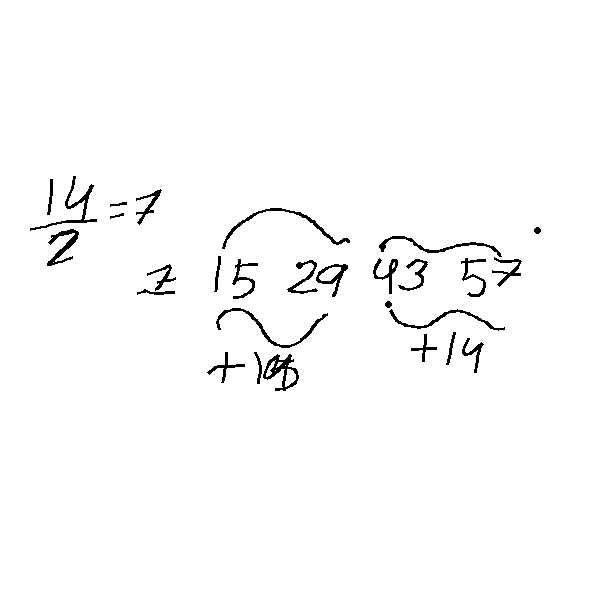 14/2 = 7
7 15 29 43 57
+14